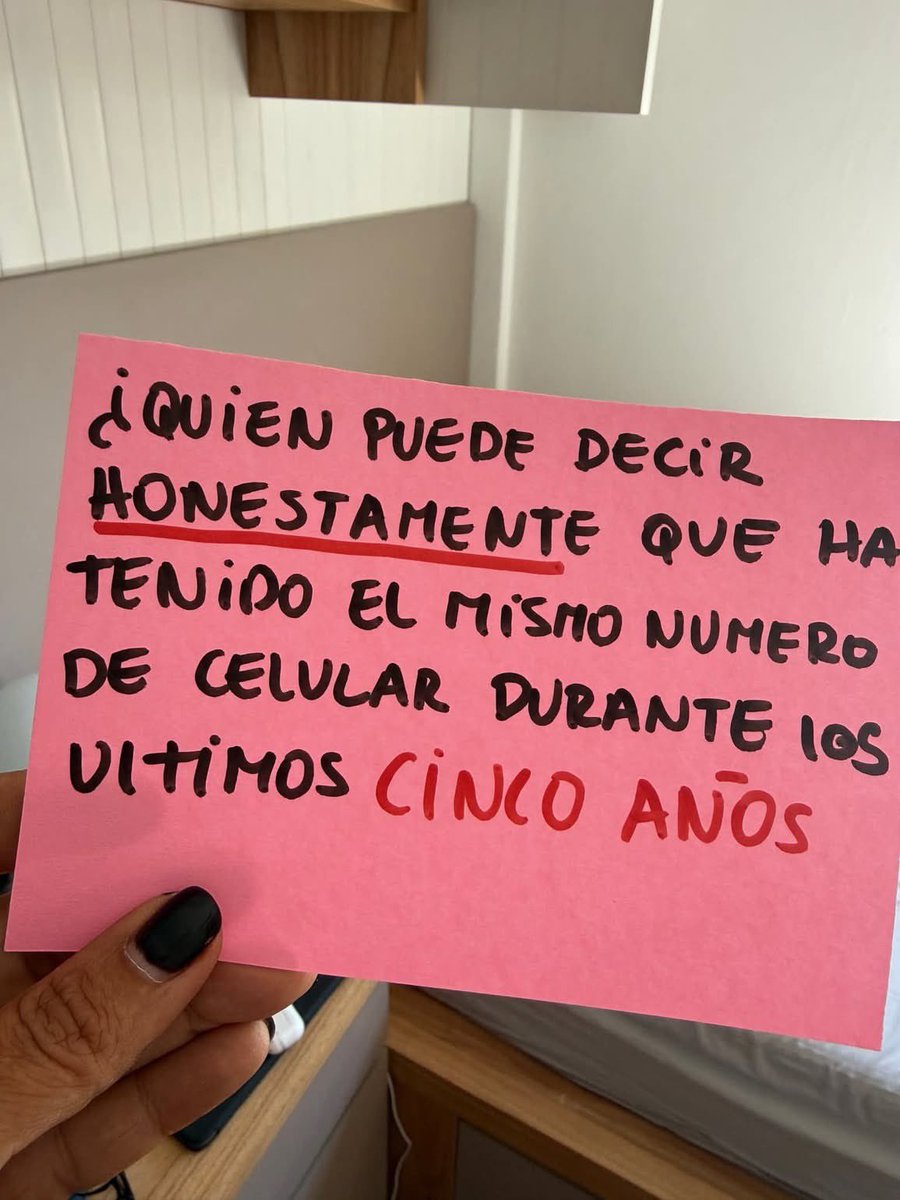 ¿QUIEN PUEDE DECIR
HONESTAMENTE QUE HA
TENIDO EL MISMO NUMERO
DE CELULAR DURANTE LOS
ULTIMOS CINCO AÑOS